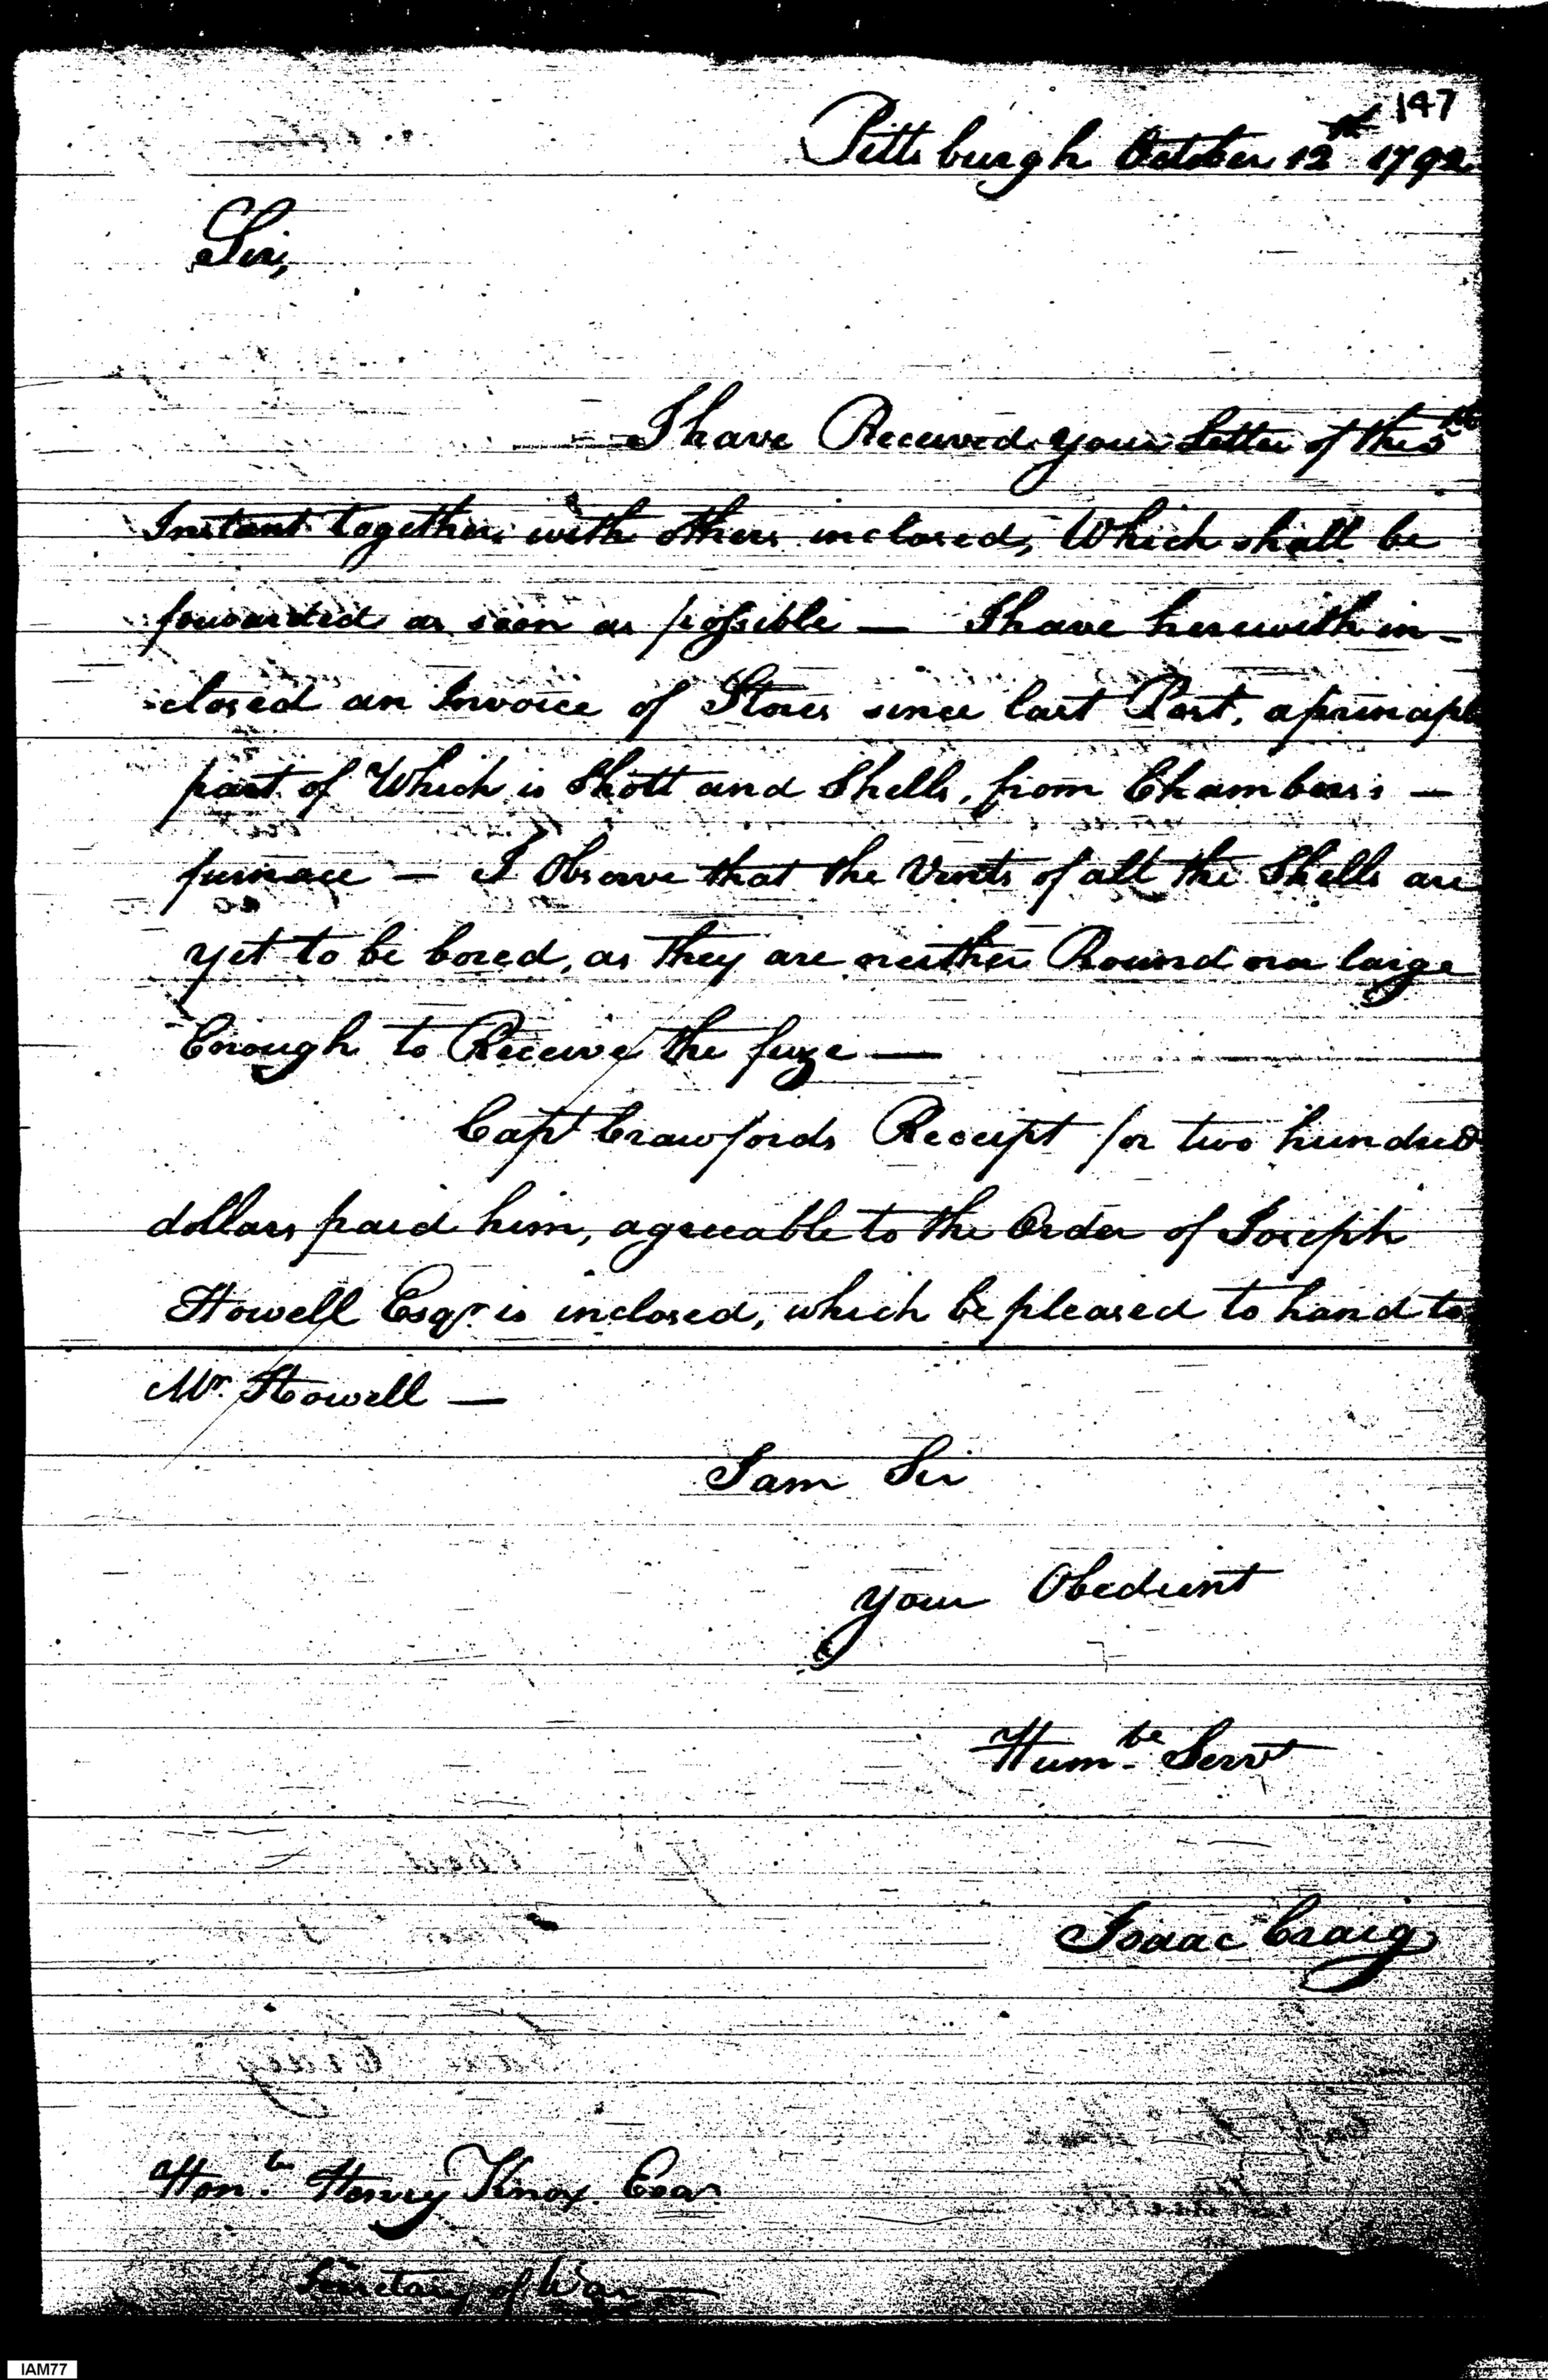 147
Pittsburgh October 12th 1792
Sir,
I have Received your Letter of the 5th
Instant together with others inclosed, Which shall be
forwarded as soon as possible — I have herewith in-
closed an Invoice of Stores since last Post, a principle
part of Which is Shott and Shells, from Chambers's —
furnace — I Observe that the Vents of all the Shells are
yet to be bored, as they are neither Round nor large
Enough to Receive the fuze —
Capt Crawfords Receipt for two hundred
dollars paid him, agreeable to the Order of Joseph
Howell Esqr. is inclosed, which be pleased to hand to
Mr. Howell —
I am Sir
your Obedient
Humbe Servt
Isaac Craig
Honble Henry Knox Esqr.
Secretary of War —
IAM77